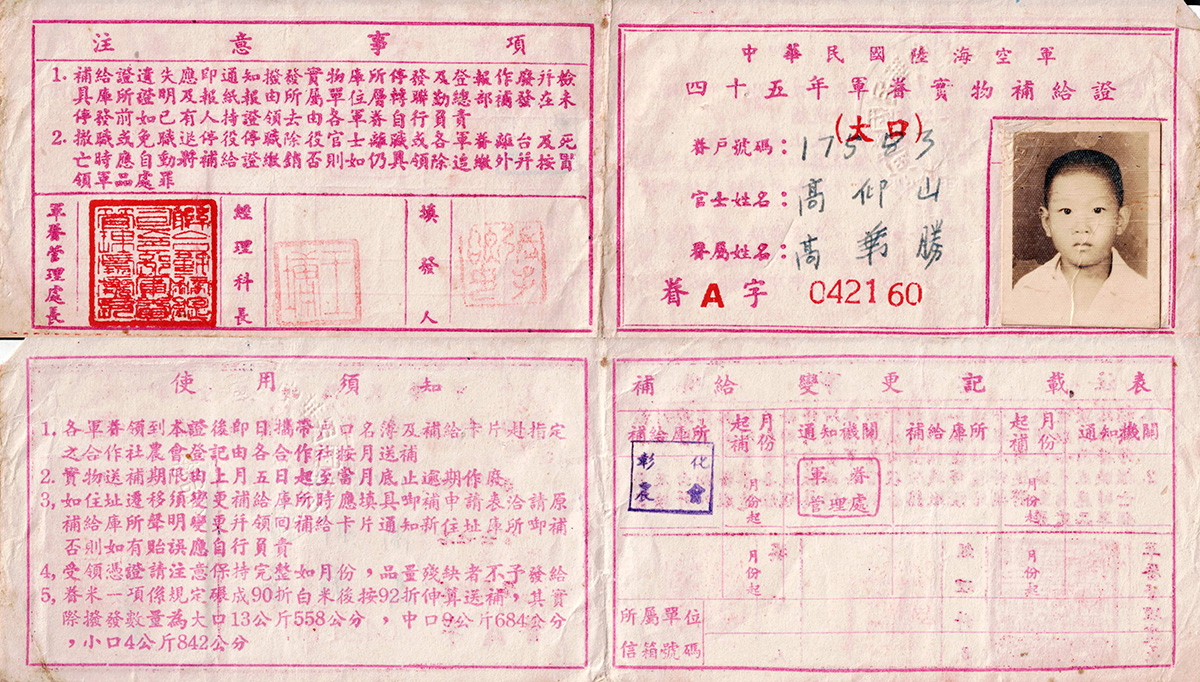 注意事項
1. 補給證遺失應即通知撥發實物庫所停發及登報作廢并檢
具庫所證明及報紙報由所屬單位層轉聯勤總部補發在未
停發前如已有人持證領去由各軍眷自行負責
2. 撤職或免職送停役停職除役官士離職或各軍眷離台及死
亡時應自動將補給證繳銷否則如仍具領除追繳外并按冒
領軍品處罪
軍眷管理處長
經理科長
填發人
中華民國陸海空軍
四十五年軍眷實物補給證
(大口)
眷戶號碼：17553
官士姓名：高仰山
眷屬姓名：高華勝
眷A字 042160
使用須知
1, 各軍眷領到本證後即日攜帶戶口名簿及補給卡片赴指定
之合作社農會登記由各合作社按月送補
2. 實物送補期限由上月五日起至當月底止逾期作廢
3, 如住址遷移須變更補給庫所時應填具啣補申請表洽請原
補給庫所聲明變更并領回補給卡片通知新住址庫所啣補
否則如有貽誤應自行負責
4, 受領憑證請注意保持完整如月份，品量殘缺者不予發給
5, 眷米一項係規定碾成90折白米後按92折伸算送補，其實
際撥發數量為大口13公斤558公分，中口9公斤684公分
，小口4公斤842公分
補給變更記載表
補給庫所 起補月份 通知機關 補給庫所 起補月份 通知機關
彰化
農會
月份起
軍眷
管理處
月份起
月份起
月份起
所屬單位
信箱號碼